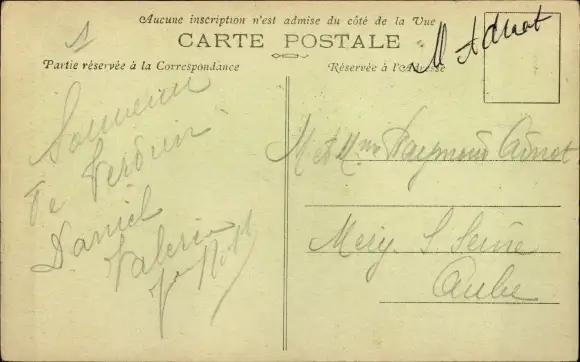 1
Aucune inscription n'est admise du côté de la Vue
CARTE POSTALE
Partie réservée à la Correspondance
Réservée à l'Adresse
M Adnot
Souvenir
de Verdun
Daniel
Valerie
M et Mme Raymond Adnot
Mery S. Seine
Aube